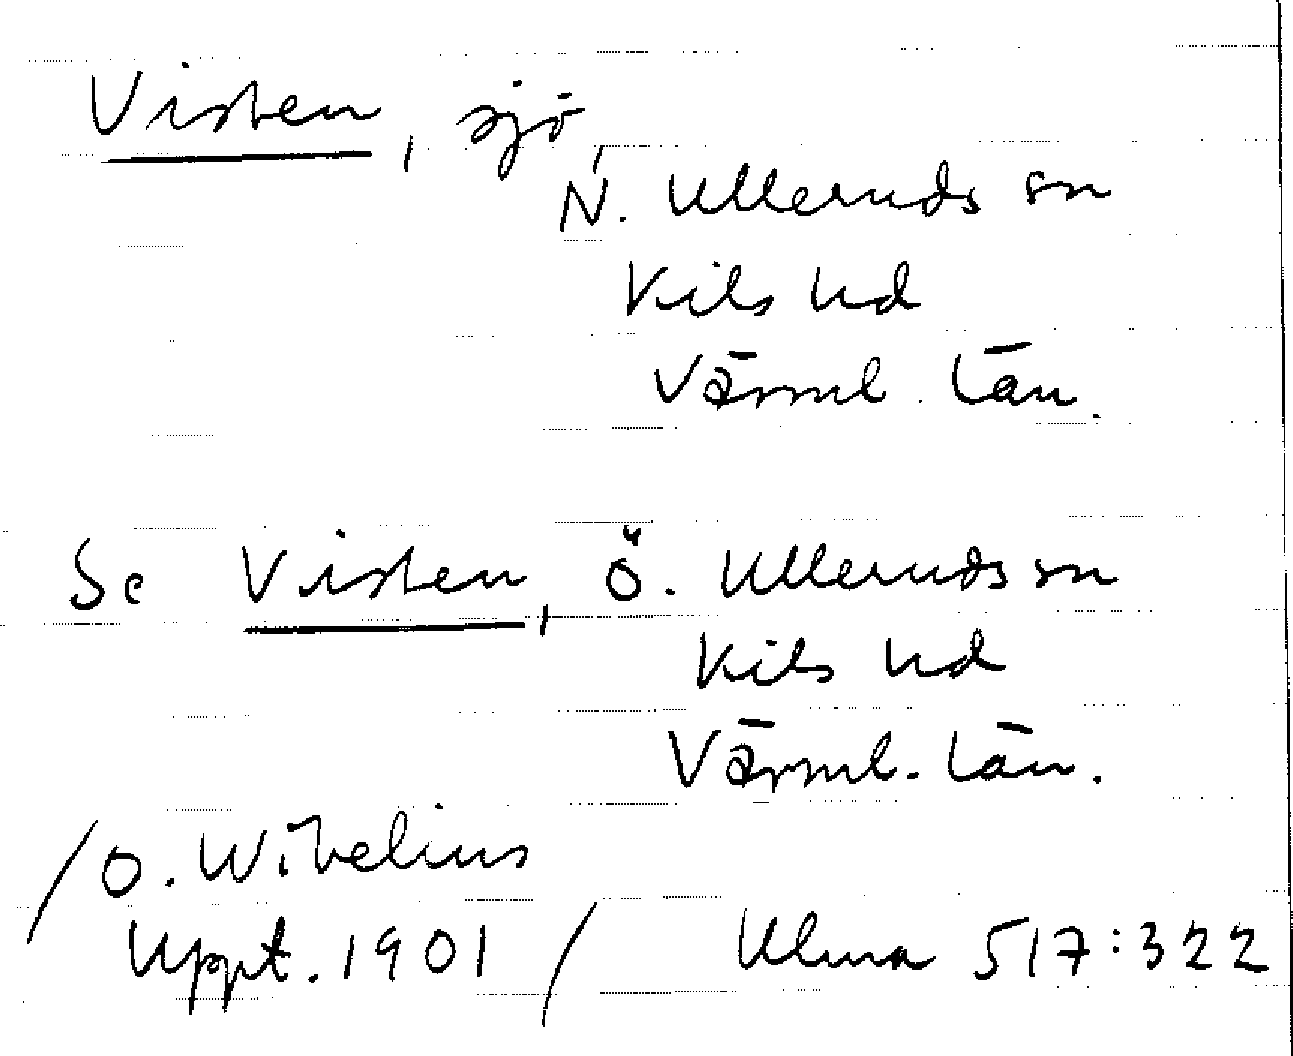 Visten, sjö,
N. Ulleruds sn
Kils hd
Värml. län.
Se Visten, Ö. Ulleruds sn
Kils hd
Värml. län.
/O. Wibelius
Uppt. 1901/ Ulma 517:322